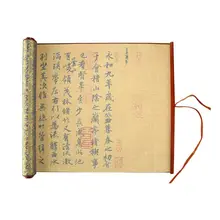 永和九年歲在癸丑暮春之初會
于會稽山陰之蘭亭脩稧事
也群賢畢至少長咸集此地
有峻領茂林脩竹又有清流激
湍暎帶左右引以為流觴曲水
列坐其次雖無絲竹管弦之